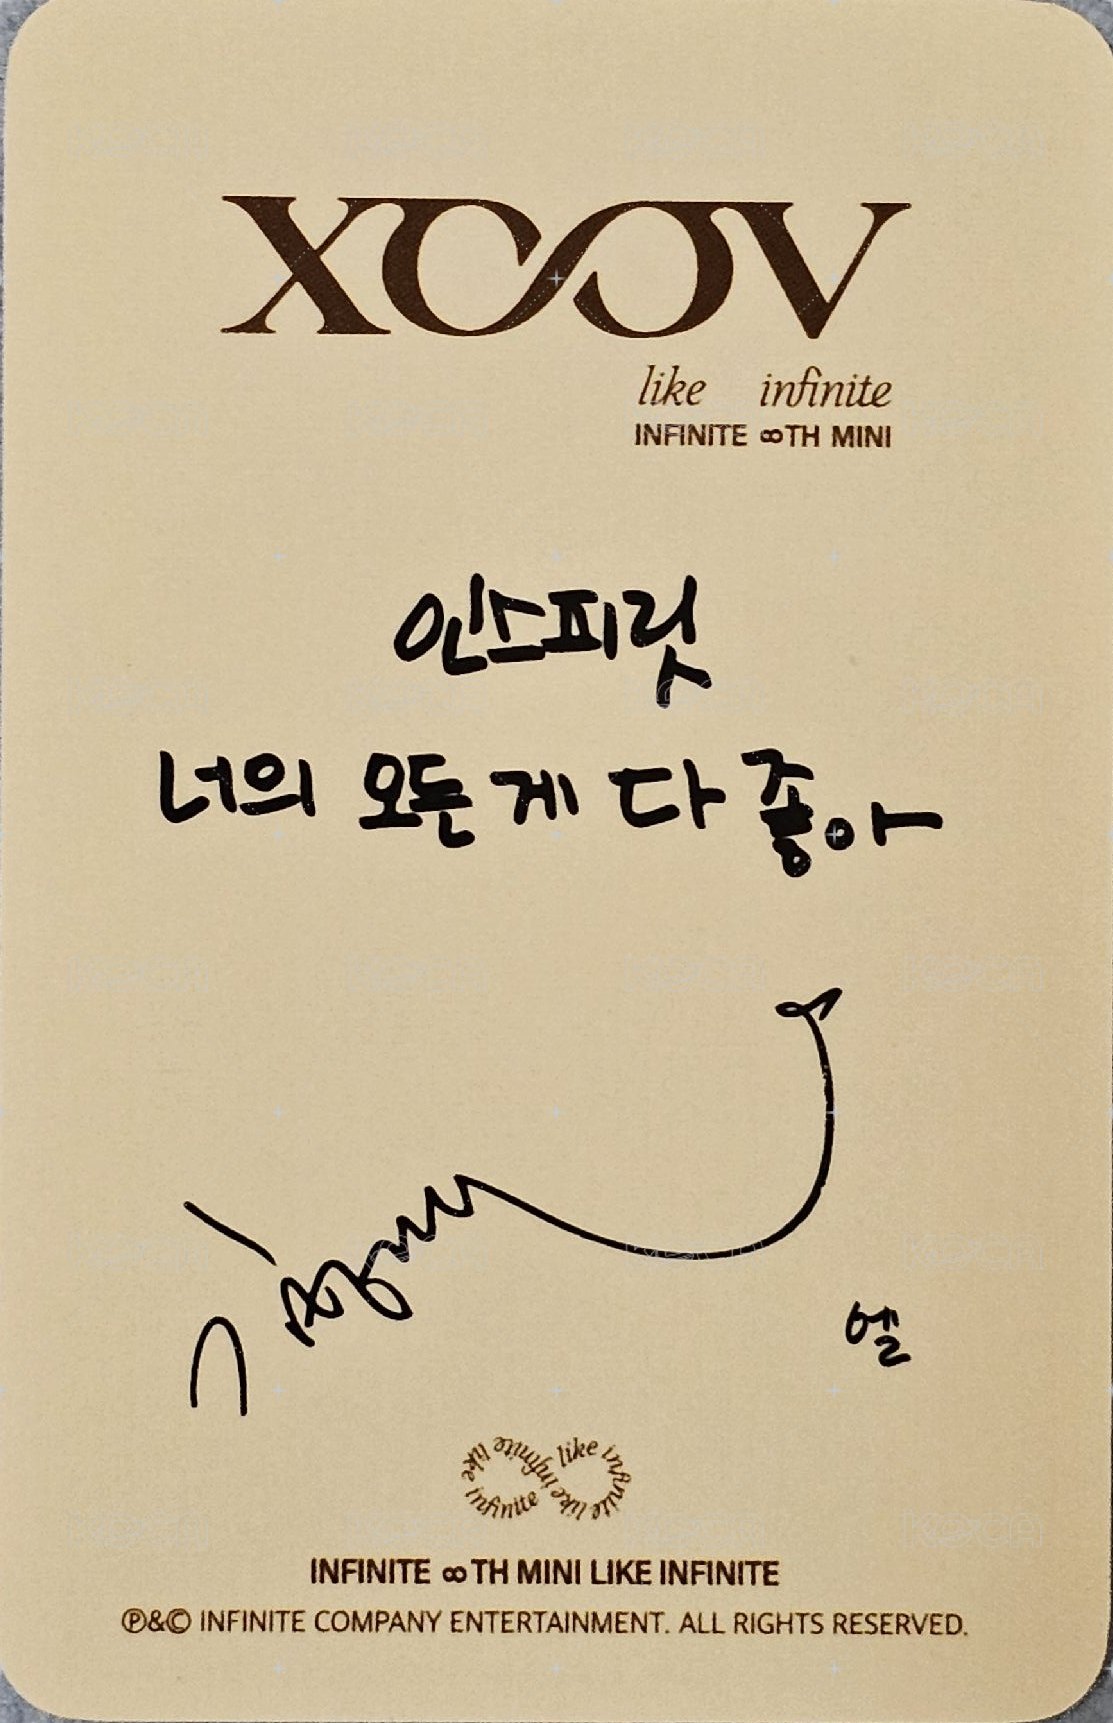 XOOV
like infinite
INFINITE ∞TH MINI
인스피릿
너의 모든 게 다 좋아
엘
like infinite like infinite like infinite like infinite
INFINITE ∞TH MINI LIKE INFINITE
℗&© INFINITE COMPANY ENTERTAINMENT. ALL RIGHTS RESERVED.